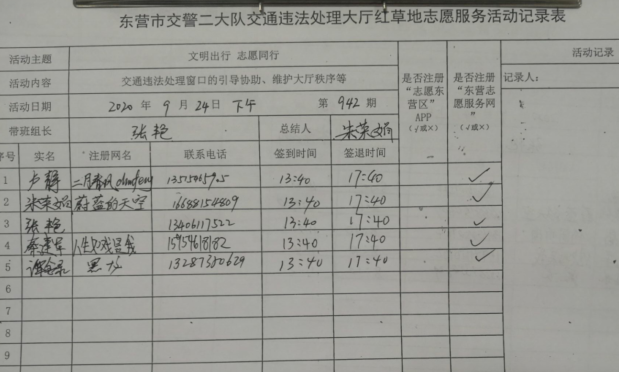 东营市交警二大队交通违法处理大厅红草地志愿服务活动记录表
活动主题 文明出行 志愿同行 活动记录
活动内容 交通违法处理窗口的引导协助、维护大厅秩序等 是否注册“志愿东营区”APP（√或×） 是否注册“东营志愿服务网”（√或×） 记录人：
活动日期 2020 年 9 月 24日 下午 第 942 期
带班组长 张艳 总结人 朱荣娟
序号 实名 注册网名 联系电话 签到时间 签退时间
1 卢静 二月春风 13:40 17:40 ✓
2 朱荣娟 蔚蓝的天空 16688154809 13:40 17:40 ✓
3 张艳 13406117522 13:40 17:40 ✓
4 15959618182 13:40 17:40 ✓
5 黑龙 13287380629 13:40 17:40 ✓
6
7
8
9